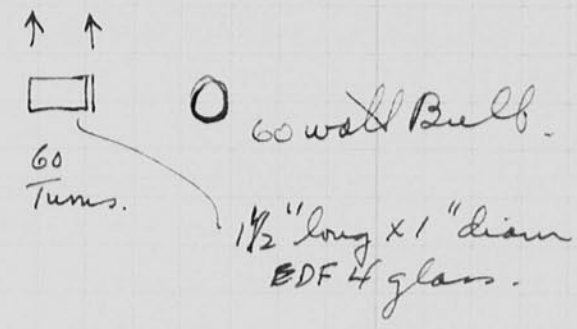 60 watt Bulb.
60
Turns.
1½" long x 1" diam
EDF 4 glass.